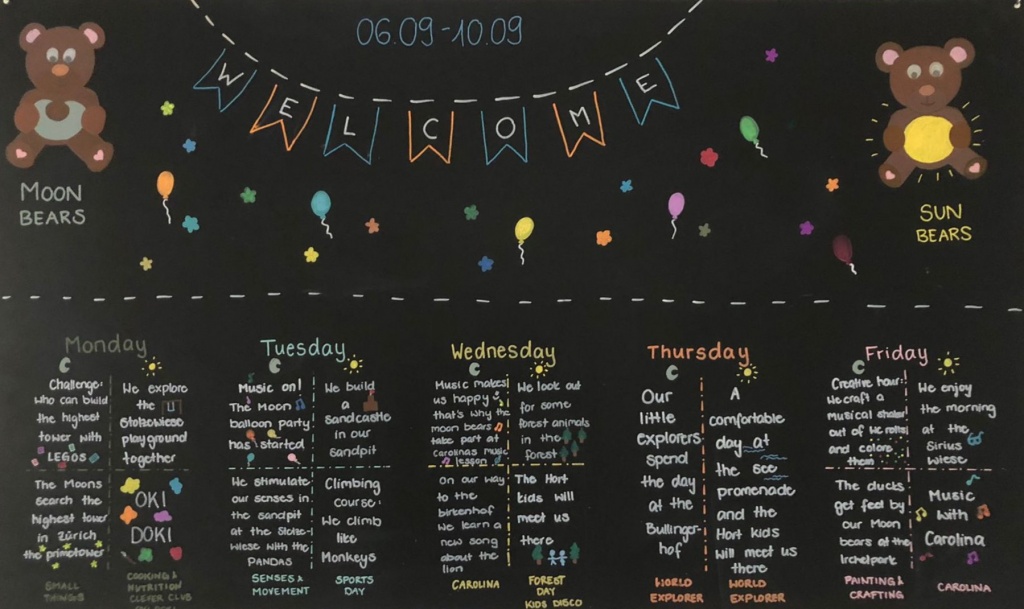 06.09-10.09
WELCOME
MOON
BEARS
SUN
BEARS
Monday
Challenge:
Who can build
the highest
tower with
LEGOS
We explore
the
Stolzewiese
playground
together
The Moons
search the
highest tower
in Zürich
the primetower
OKI
DOKI
SMALL
THINGS
COOKING &
NUTRITION
CLEVER CLUB
Tuesday
Music on!
The Moon
balloon party
has started
We build
a
sandcastle
in our
sandpit
We stimulate
our senses in
the sandpit
at the Stolze-
wiese with the
PANDAS
Climbing
course:
We climb
like
Monkeys
SENSES &
MOVEMENT
SPORTS
DAY
Wednesday
Music makes
us happy
that's why the
moon bears
take part at
Carolina's music
lesson
We look out
for some
forest animals
in the
forest
on our way
to the
birkenhof
we learn a
new song
about the
lion
The Hort
kids will
meet us
there
CAROLINA
FOREST
DAY
KIDS DISCO
Thursday
Our
little
explorers
spend
the day
at the
Bullinger-
hof
A
comfortable
day at
the see
promenade
and the
Hort kids
will meet us
there
WORLD
EXPLORER
WORLD
EXPLORER
Friday
Creative hour:
We craft a
musical shaker
out of wc rolls
and colore
them
We enjoy
the morning
at the
Sirius
wiese
The ducks
get feed by
our Moon
bears at the
Irchelpark
Music
with
Carolina
PAINTING &
CRAFTING
CAROLINA